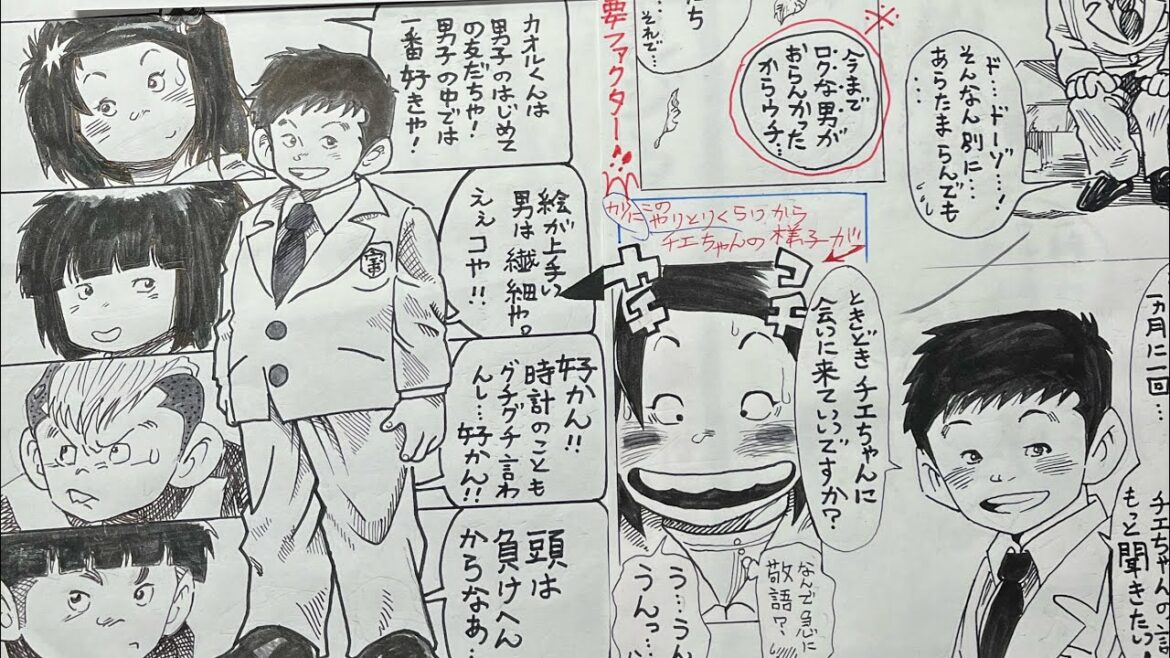 カオルくんは
男子のはじめて
の友だちや!
男子の中では
一番好きや!
絵が上手い
男は繊細や。
ええコや!!
好かん!!
時計のことも
グチグチ言わ
んし…好かん!!
頭は
負けへん
からなあ…
要ファクター!!
それで…
※
今まで
ロクな男が
おらんかった
からウチ…
ド…ドーゾ…!
そんなん別に…
あらたまらんでも
…
カリにこの
やりとりくらいから
チエちゃんの様子が
コチ
コチ
ときどきチエちゃんに
会いに来ていいですか?
う…うん
うんっ…
なんで急に
敬語?
一ヵ月に一回…
チエちゃんの話
もっと聞きたい